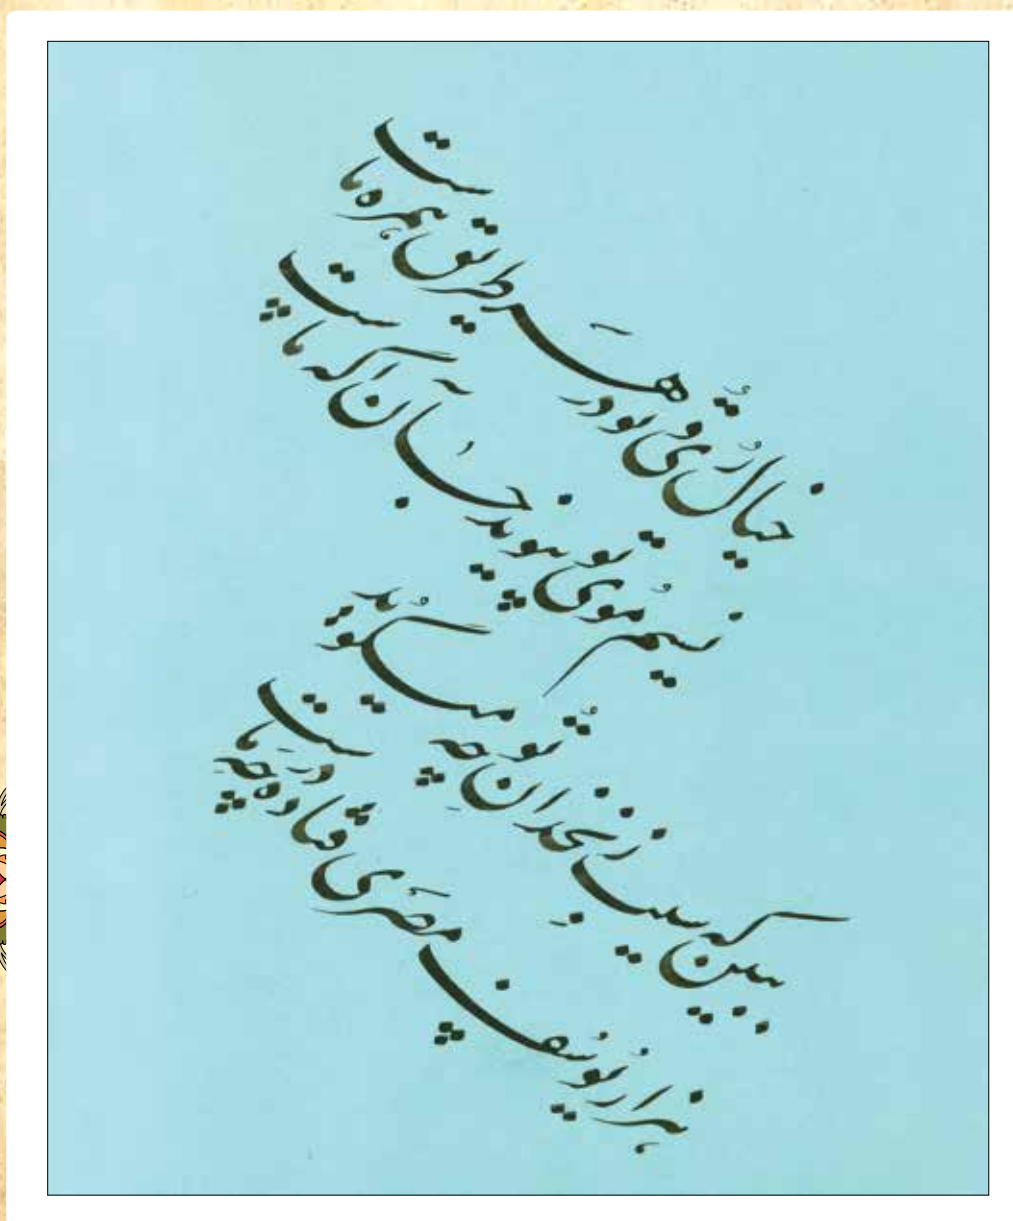 خیال رُوی تُو در هَر طریق همره ماست
نسیم مُوی تو پیوند جان آگه ماست
ببین که سیبِ زنخدانِ تُو چه میگُوید
هزار یُوسُفِ مصَری فتاده دَر چَهِ ماست